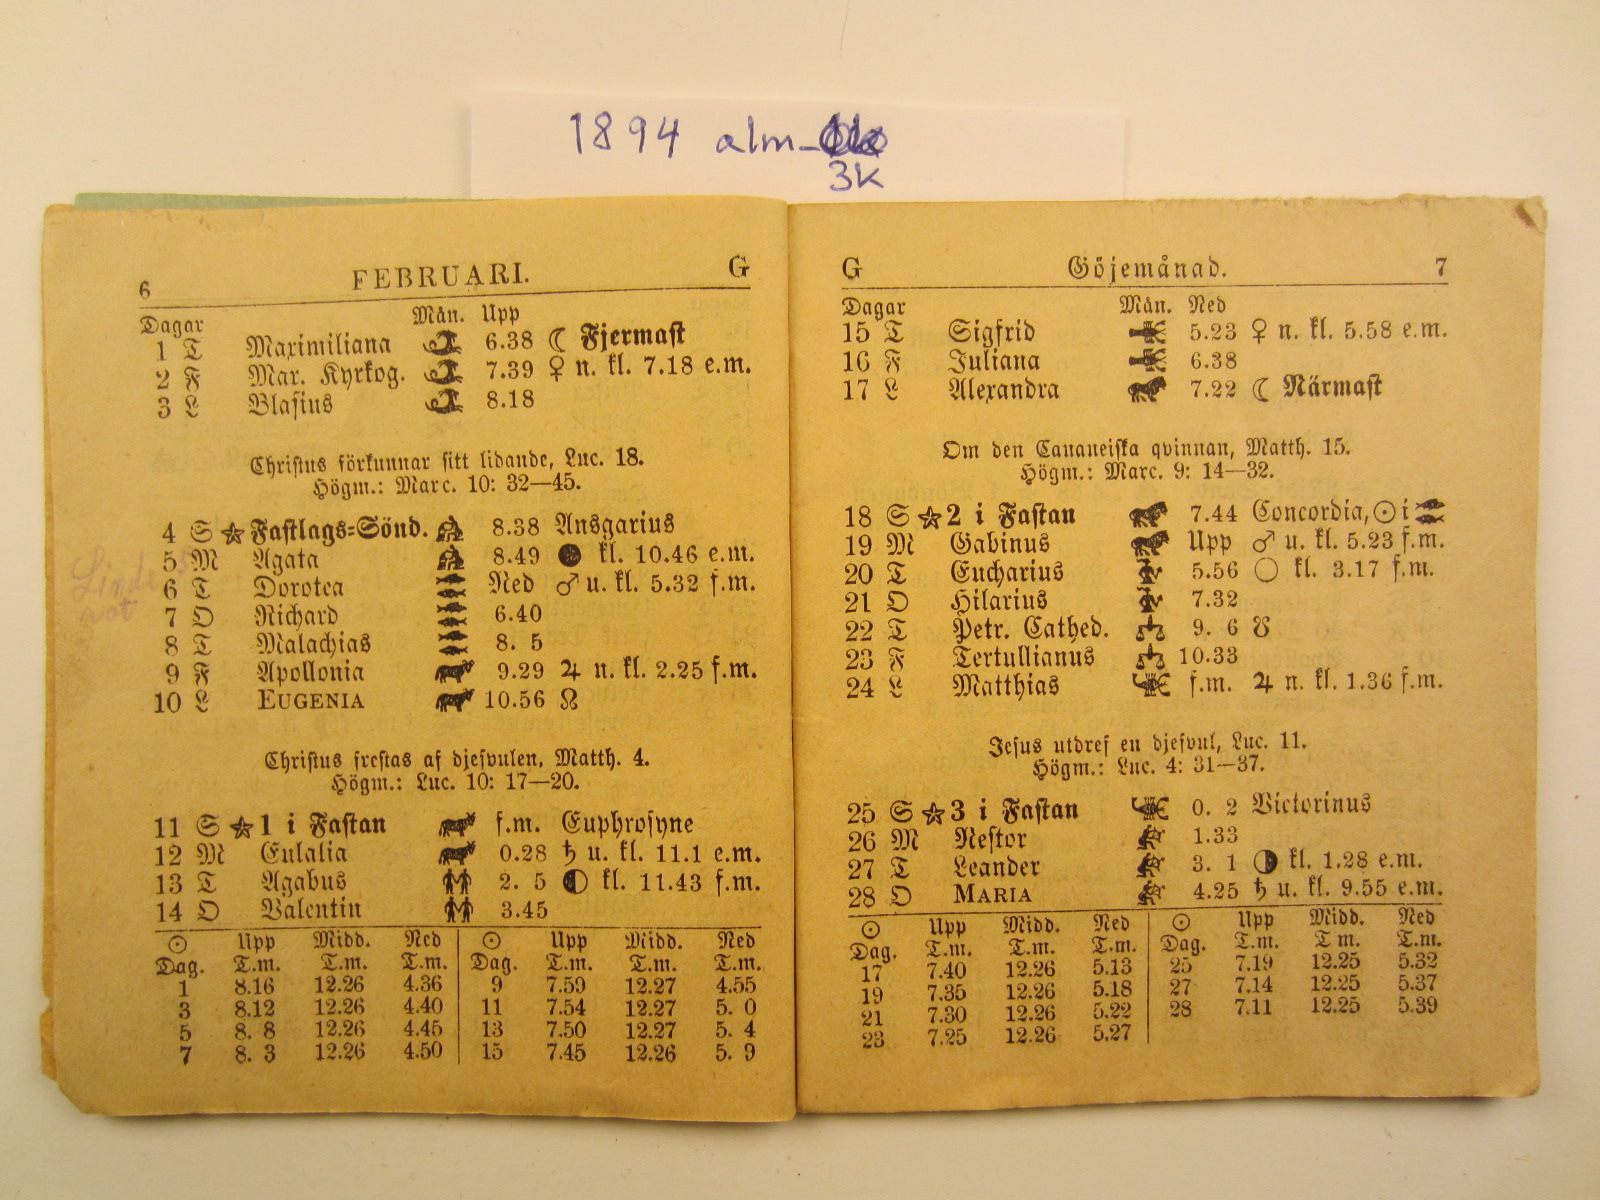 1894 alm-
3K
6 FEBRUARI. G
Dagar Mån. Upp
1 T Maximiliana 6.38 ☾ Fjermast
2 F Mar. Kyrkog. 7.39 ♀ n. kl. 7.18 e.m.
3 L Blasius 8.18
Christus förkunnar sitt lidande, Luc. 18.
Högm.: Marc. 10: 32—45.
4 S ☆ Fastlags=Sönd. 8.38 Ansgarius
5 M Agata 8.49 ● kl. 10.46 e.m.
6 T Dorotea Ned ♂ u. kl. 5.32 f.m.
7 O Richard 6.40
8 T Malachias 8. 5
9 F Apollonia 9.29 ♃ n. kl. 2.25 f.m.
10 L EUGENIA 10.56 ☊
Christus frestas af djefvulen, Matth. 4.
Högm.: Luc. 10: 17—20.
11 S ☆ 1 i Fastan f.m. Euphrosyne
12 M Eulalia 0.28 ♄ u. kl. 11.1 e.m.
13 T Agabus 2. 5 ◐ kl. 11.43 f.m.
14 O Valentin 3.45
☉ Upp Midd. Ned ☉ Upp Midd. Ned
Dag. T.m. T.m. T.m. Dag. T.m. T.m. T.m.
1 8.16 12.26 4.36 9 7.59 12.27 4.55
3 8.12 12.26 4.40 11 7.54 12.27 5. 0
5 8. 8 12.26 4.45 13 7.50 12.27 5. 4
7 8. 3 12.26 4.50 15 7.45 12.26 5. 9
G Göjemånad. 7
Dagar Mån. Ned
15 T Sigfrid 5.23 ♀ n. kl. 5.58 e.m.
16 F Juliana 6.38
17 L Alexandra 7.22 ☾ Närmast
Om den Cananeiska qvinnan, Matth. 15.
Högm.: Marc. 9: 14—32.
18 S ☆ 2 i Fastan 7.44 Concordia, ☉ i
19 M Gabinus Upp ♂ u. kl. 5.23 f.m.
20 T Eucharius 5.56 ○ kl. 3.17 f.m.
21 O Hilarius 7.32
22 T Petr. Cathed. 9. 6 ☋
23 F Tertullianus 10.33
24 L Matthias f.m. ♃ n. kl. 1.36 f.m.
Jesus utdref en djefvul, Luc. 11.
Högm.: Luc. 4: 31—37.
25 S ☆ 3 i Fastan 0. 2 Victorinus
26 M Nestor 1.33
27 T Leander 3. 1 ◑ kl. 1.28 e.m.
28 O MARIA 4.25 ♄ u. kl. 9.55 e.m.
☉ Upp Midd. Ned ☉ Upp Midd. Ned
Dag. T.m. T.m. T.m. Dag. T.m. T m. T.m.
17 7.40 12.26 5.13 25 7.19 12.25 5.32
19 7.35 12.26 5.18 27 7.14 12.25 5.37
21 7.30 12.26 5.22 28 7.11 12.25 5.39
23 7.25 12.26 5.27